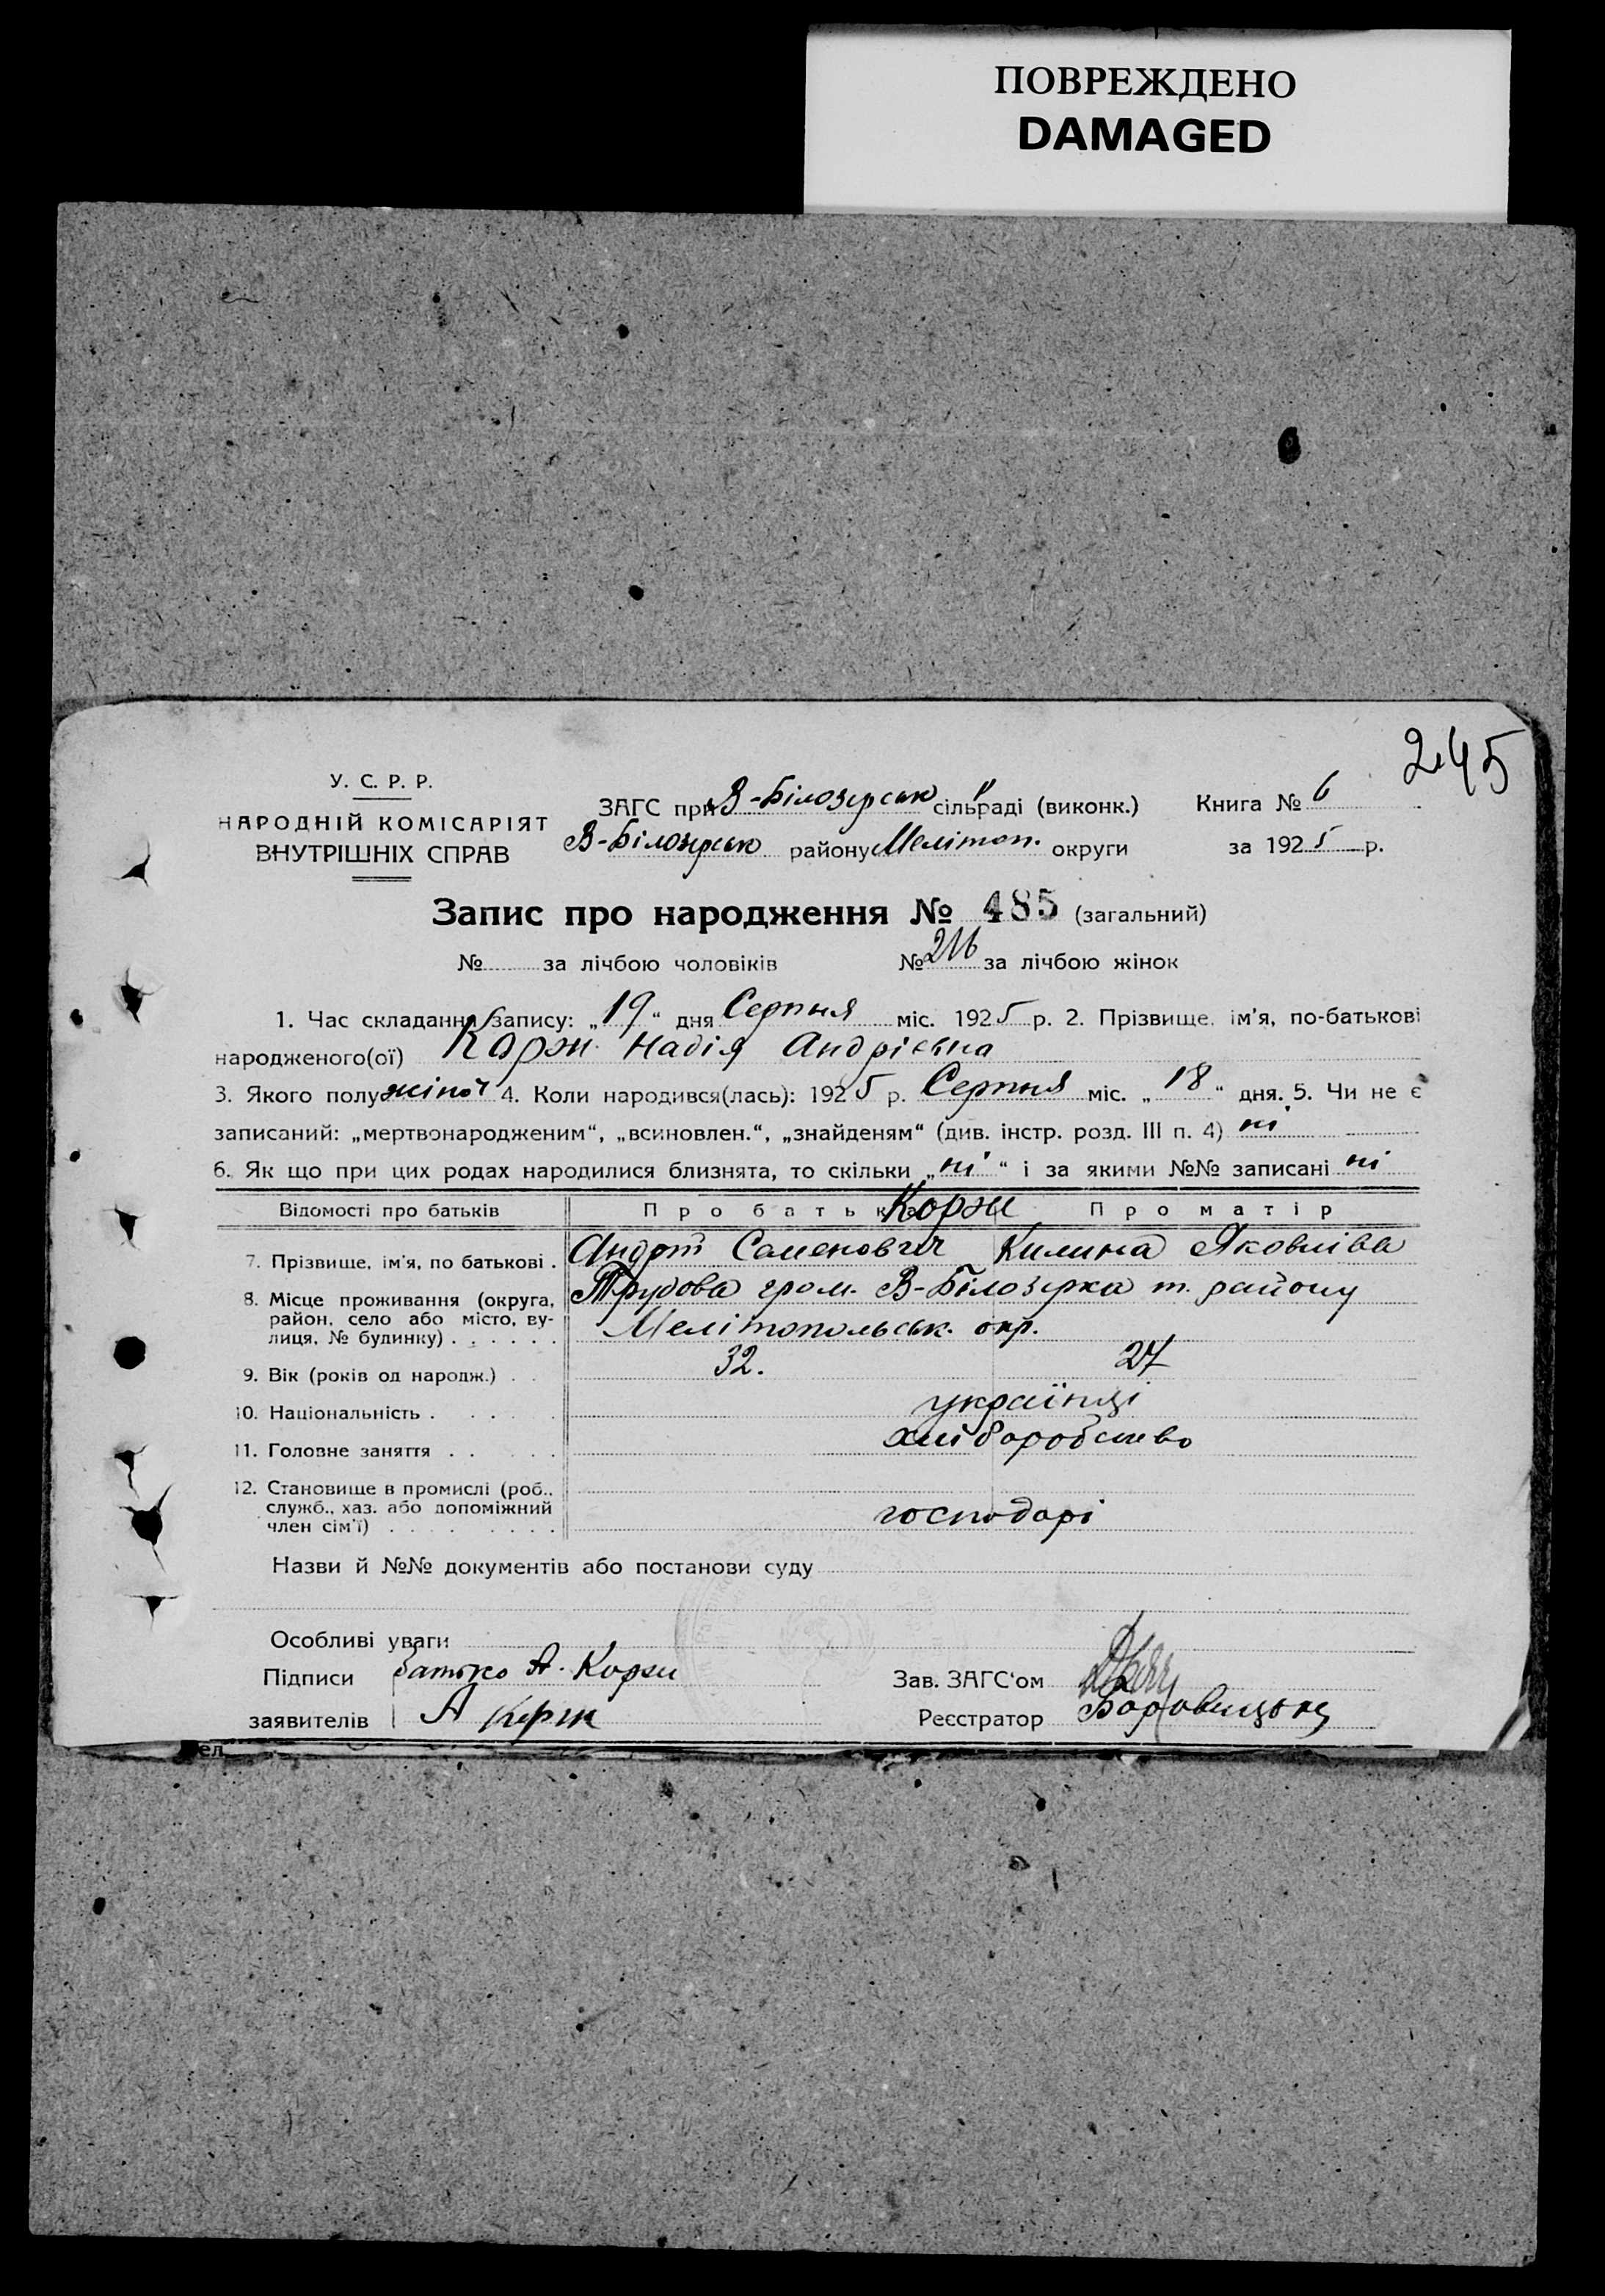 ПОВРЕЖДЕНО
DAMAGED
245
У. С. Р. Р.
НАРОДНІЙ КОМІСАРІЯТ
ВНУТРІШНІХ СПРАВ
ЗАГС при В-Білозерськ сільраді (виконк.) Книга № 6
В-Білозерськ району Меліт оп. округи за 1925 р.
Запис про народження № 485 (загальний)
№ за лічбою чоловіків № 216 за лічбою жінок
1. Час складання запису: „19" дня Серпня міс. 1925 р. 2. Прізвище, ім'я, по-батькові
народженого(ої) Корж Надія Андріевна
3. Якого полу жіноч 4. Коли народився(лась): 1925 р. Серпня міс. „18" дня. 5. Чи не є
записаний: „мертвонародженим", „всиновлен.", „знайденям" (див. інстр. розд. III п. 4) ні
6. Як що при цих родах народилися близнята, то скільки „ні" і за якими №№ записані ні
Відомості про батьків Про батька Корж Про матір
7. Прізвище, ім'я, по батькові . Андрій Семенович Килина Яковліва
8. Місце проживання (округа, район, село або місто, ву-лиця, № будинку) . . . . . . Трудова гром. В-Білозерка т. району
Мелітопольськ. окр.
9. Вік (років од народж.) . . 32. 27
10. Національність . . . . . українці
11. Головне заняття . . . . . хліборобство
12. Становище в промислі (роб.,
служб., хаз. або допоміжний
член сім'ї) . . . . . . . . господарі
Назви й №№ документів або постанови суду
Особливі уваги
Підписи батько А. Корж Зав. ЗАГС'ом
заявителів А Корж Реєстратор Боровицьк